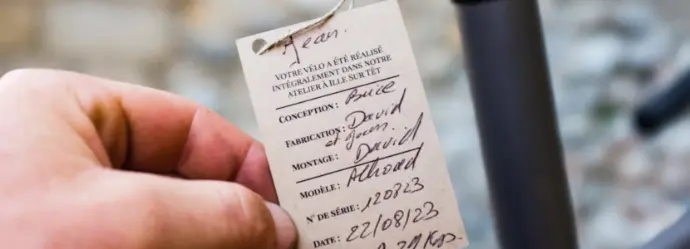 Jean.
VOTRE VÉLO A ÉTÉ RÉALISÉ
INTÉGRALEMENT DANS NOTRE
ATELIER À ILLE SUR TÊT
CONCEPTION : Brice
FABRICATION : David
et
MONTAGE : David
MODÈLE : Allroad
N° DE SÉRIE : 120823
DATE : 22/08/23